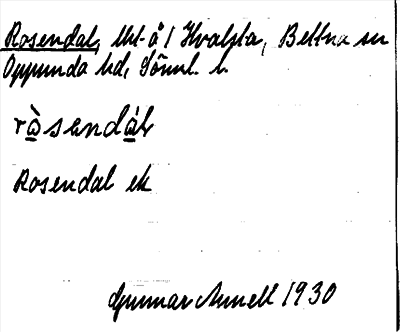 Rosendal, lht å 1 Hvalsta, Bettna sn
Oppunda hd, Söml. l.
ràsandál
Rosendal ek
Gunnar Annell 1930